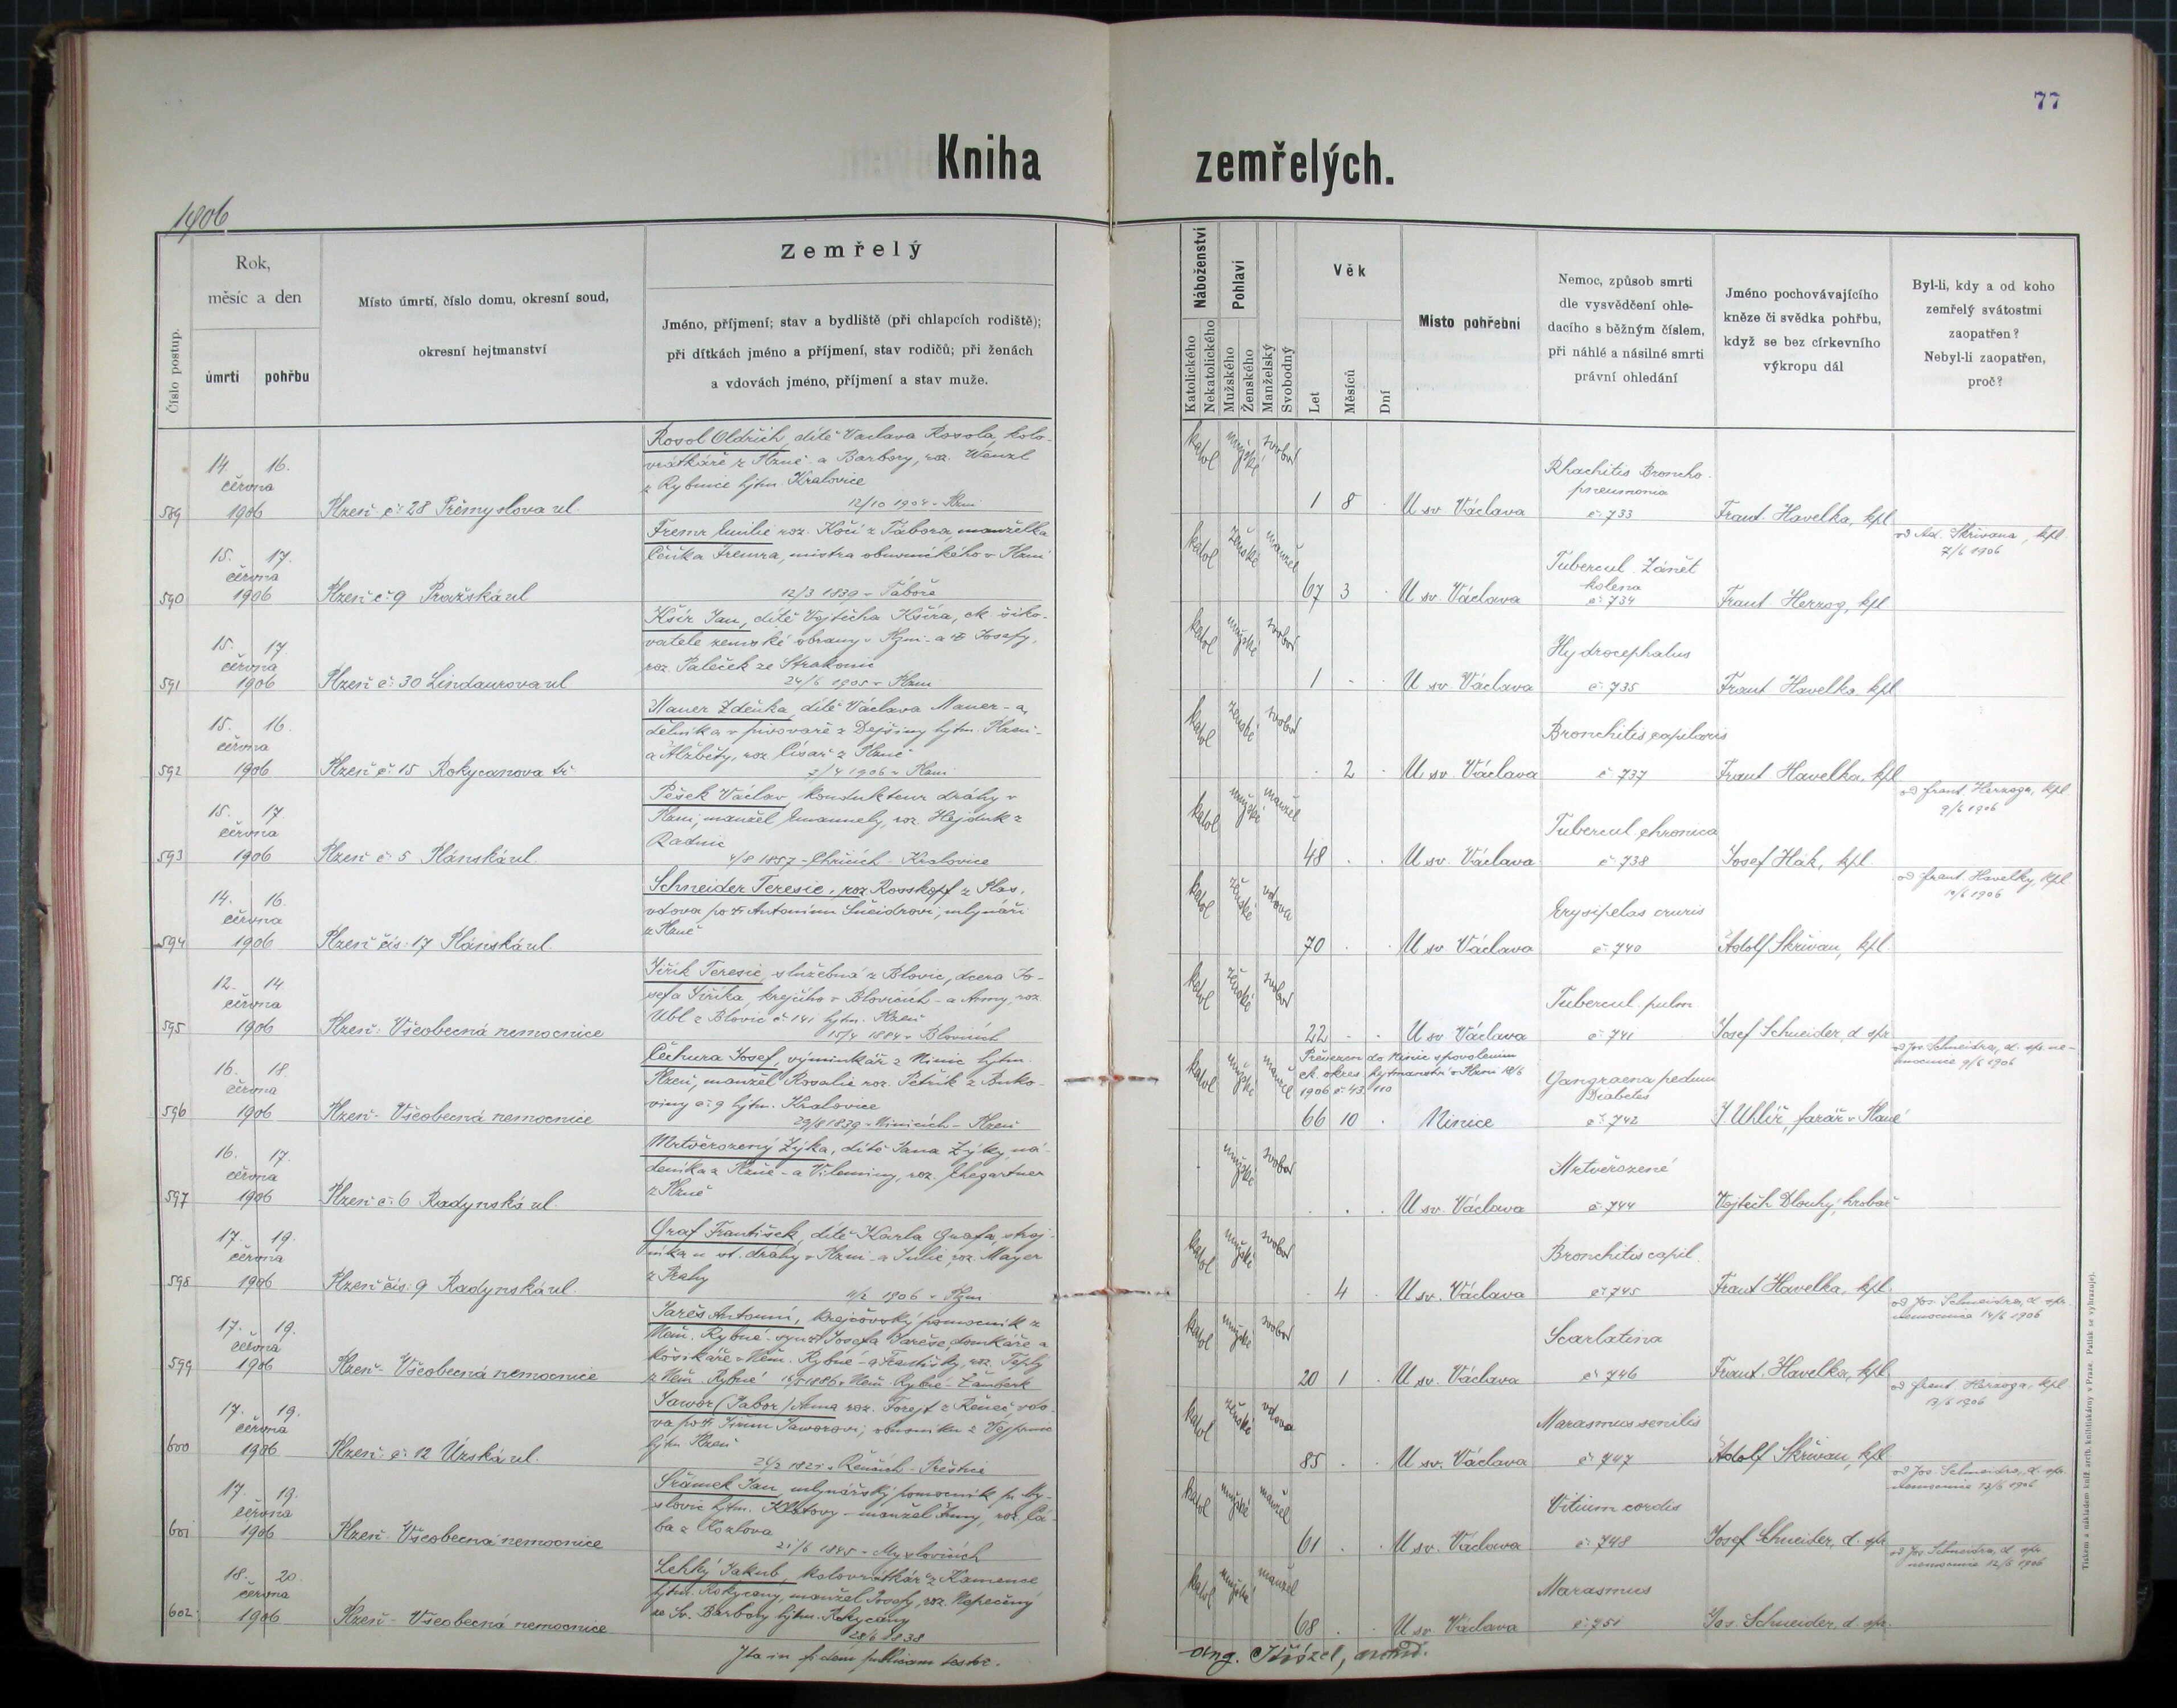 77
Kniha zemřelých.
1906
Číslo postup.
Rok,
měsíc a den
úmrtí
pohřbu
Místo úmrtí, číslo domu, okresní soud,
okresní hejtmanství
Zemřelý
Jméno, příjmení; stav a bydliště (při chlapcích rodiště);
při dítkách jméno a příjmení, stav rodičů; při ženách
a vdovách jméno, příjmení a stav muže.
Náboženství
Katolického
Nekatolického
Pohlaví
Mužského
Ženského
Manželský
Svobodný
Věk
Let
Měsíců
Dní
Místo pohřební
Nemoc, způsob smrti
dle vysvědčení ohle-
dacího s běžným číslem,
při náhlé a násilné smrti
právní ohledání
Jméno pochovávajícího
kněze či svědka pohřbu,
když se bez církevního
výkropu dál
Byl-li, kdy a od koho
zemřelý svátostmi
zaopatřen?
Nebyl-li zaopatřen,
proč?
589
14. 16.
června
1906
Plzeň č: 28 Přemyslova ul.
Rosol Oldřich, dítě Václava Rosola, kolo-
vrátkáře z Plzně a Barbory, roz. Wenzl
z Rybnice hjtm. Kralovice
12/10 1904 v Plzni
katol mužské svobod
1 8 .
U sv. Václava
Rhachitis Broncho-
pneumonia
č: 733
Frant. Havelka, kpl
590
15. 17.
června
1906
Plzeň č: 9 Pražská ul
Fremr Emilie roz. Kočí z Tábora, manželka
Čeňka Fremra, mistra obuvnického v Plzni
12/3 1839 v Táboře
katol ženské manžel
67 3 .
U sv. Václava
Tubercul. Zánět
kolena
č: 734
Frant Herzog, kpl
od Ad. Skřivana, kpl.
7/6 1906
591
15. 17
června
1906
Plzeň č: 30 Lindaurova ul
Kšír Jan, dítě Vojtěcha Kšíra, ck šiko-
vatele zemské obrany v Plzni a Josefy,
roz. Paleček ze Strakonic
24/6 1905 v Plzni
katol mužské svobod
1 . .
U sv Václava
Hydrocephalus
č: 735
Frant Havelka kpl
592
15. 16.
června
1906
Plzeň č: 15 Rokycanova tř.
Mauer Zdeňka, dítě Václava Mauer-a,
dělníka v pivovaře z Dejšiny hjtm. Plzeň-
a Alžběty, roz Císař z Plzně
7/4 1906 v Plzni
katol ženské svobod
. 2 .
U sv. Václava
Bronchitis capilaris
č: 737
Frant Havelka, kpl
593
15. 17.
června
1906
Plzeň č: 5 Plánská ul.
Pešek Václav, kondukteur dráhy v
Plzni, manžel Emanuely, roz. Hejduk z
Radnic
4/8 1857 - Chříčích - Kralovice
katol mužské manžel
48 . .
U sv. Václava
Tubercul chronica
č: 738
Josef Hák, kpl.
od frant. Herzoga, kpl
9/6 1906
594
14. 16.
června
1906
Plzeň čís: 17 Plánská ul.
Schneider Teresie, roz Rosskopf z Plas.
vdova po † Antonínu Šneidrovi, mlynáři
z Plzně
katol ženské vdova
70 . .
U sv Václava
Erysipelas cruris
č: 740
Adolf Skřivan, kpl
od frant. Havelky, kpl
595
12. 14.
června
1906
Plzeň: Všeobecná nemocnice
Jiřík Teresie, služebná z Blovic, dcera Jo-
sefa Jiříka, krejčího v Blovicích - a Anny, roz.
Ubl z Blovic č: 141 hjtm. Plzeň
15/4 1884 v Blovicích
katol ženské svobod
22 . .
U sv Václava
Tubercul. pulm.
č: 741
Josef Schneider, d. spr.
od Jos. Schneidra, d. sp. ne-
mocnice 9/6 1906
596
16. 18.
června
1906
Plzeň- Všeobecná nemocnice
Čechura Josef, výminkář z Ninic hjtm.
Plzeň, manžel Rosalie roz. Petřík z Buko-
viny č: 9 hjtm. Kralovice
29/8 1839 v Ninicích - Plzeň
katol mužské manžel
Převezen do Ninic s povolením
ck. okres. hejtmanství v Plzni 18/6
1906 č: 43.110
66 10 .
Ninice
Gangraena pedum
Diabetes
č: 742
J. Uhlíř, farář v Plané
597
16. 17.
června
1906
Plzeň č: 6 Radynská ul.
Mrtvěrozený Zýka, dítě Jana Zýky, ná-
deníka z Plzně - a Vilemíny, roz. Ehegartner
z Plzně
mužské svobod
. . .
U sv. Václava
Mrtvěrozené
č: 744
Vojtěch Dlouhý, hrobař
598
17. 19.
června
1906
Plzeň čís: 9 Radynská ul.
Graf František, dítě Karla Grafa, stroj-
níka u st. dráhy v Plzni - a Julie, roz. Mayer
z Prahy
11/2 1906 v Plzni
katol mužské svobod
. 4 .
U sv. Václava
Bronchitis capil.
č: 745
Frant Havelka, kpl.
599
17. 19.
června
1906
Plzeň- Všeobecná nemocnice
Jareš Antonín, krejčovský pomocník z
Něm. Rybné - syn † Josefa Jareše, domkáře a
košíkáře v Něm. Rybné - a Františky, roz. Teplý
z Něm. Rybné 1886 v Něm. Rybné - Žamberk
katol mužské svobod
20 1 .
U sv. Václava
Scarlatina
č: 746
Frant. Havelka, kpl
od Jos. Schneidra, d. spr.
nemocnice 14/6 1906
600
17. 19.
června
1906
Plzeň: č: 12 Úzská ul.
Jawor (Jabor) Anna roz. Forejt z Řeneč vdo-
va po † Jiřím Jaworovi,
hjtm. Plzeň
24/2 1821 v Řenčích - Přeštice
katol ženské vdova
85 . .
U sv. Václava
Marasmus senilis
č: 747
Adolf Skřivan, kpl
od frant Herzoga, kpl
13/6 1906
601
17. 19.
června
1906
Plzeň- Všeobecná nemocnice
Šrámek Jan, mlynářský pomocník, př. My-
slovic hjtm. Klatovy - manžel Anny, roz. Čá-
ba z Kozlova
21/6 1845 v Myslovicích
katol mužské manžel
61 . .
U sv. Václava
Vitium cordis
č: 748
Josef Schneider, d. spr
od Jos. Schneidra, d. spr.
nemocnice 12/6 1906
602
18. 20.
června
1906
Plzeň- Všeobecná nemocnice
Lehký Jakub, kolovrátkář z Kamence
hjtm. Rokycany, manžel Josefy, roz. Nepečený
ze Sv. Barbory hjtm. Rokycany
28/6 1838
katol mužské manžel
68 . .
U sv Václava
Marasmus
č: 751
Jos. Schneider, d. spr.
od Jos. Schneidra, d. spr.
nemocnice 12/6 1906
Ita in fidem publicam testor.
Tiskem a nákladem kníž. arcib. knihtiskárny v Praze. Patisk se vyhrazuje).